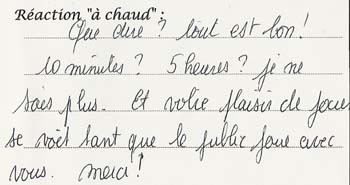 Réaction "à chaud" :
Que dire ? tout est bon !
10 minutes ? 5 heures ? je ne
sais plus. Et votre plaisir de jouer
se voit tant que le public joue avec
vous. merci !